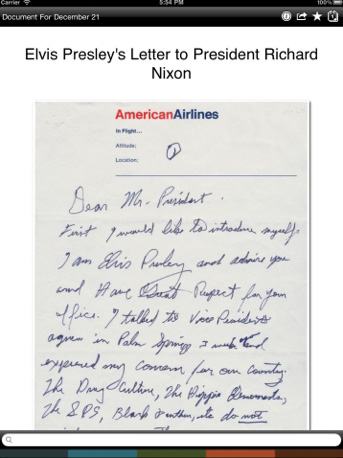 Carrier
5:54 PM
100%
Document For December 21
Elvis Presley's Letter to President Richard
Nixon
AmericanAirlines
In Flight...
Altitude:
Location:
①
Dear Mr. President.
First I would like to introduce myself.
I am Elvis Presley and admire you
and Have Great Respect for your
office. I talked to Vice President
agnew in Palm Springs I week and
expressed my concern for our country.
The Drug Culture, The Hippie Elements,
the SDS, Black Panthers, etc do not